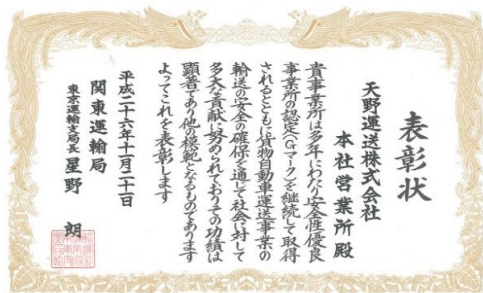 表彰状
天野運送株式会社
本社営業所殿
貴事業所は多年にわたり安全性優良
事業所の認定(Gマーク)を継続して取得
されるとともに貨物自動車運送事業の
輸送の安全の確保を通じて社会に対して
多大な貢献に努められておりその功績は
顕著であり他の模範となるものであります
よってこれを表彰します
平成二十六年十一月二十一日
関東運輸局
東京運輸支局長 星野 朗